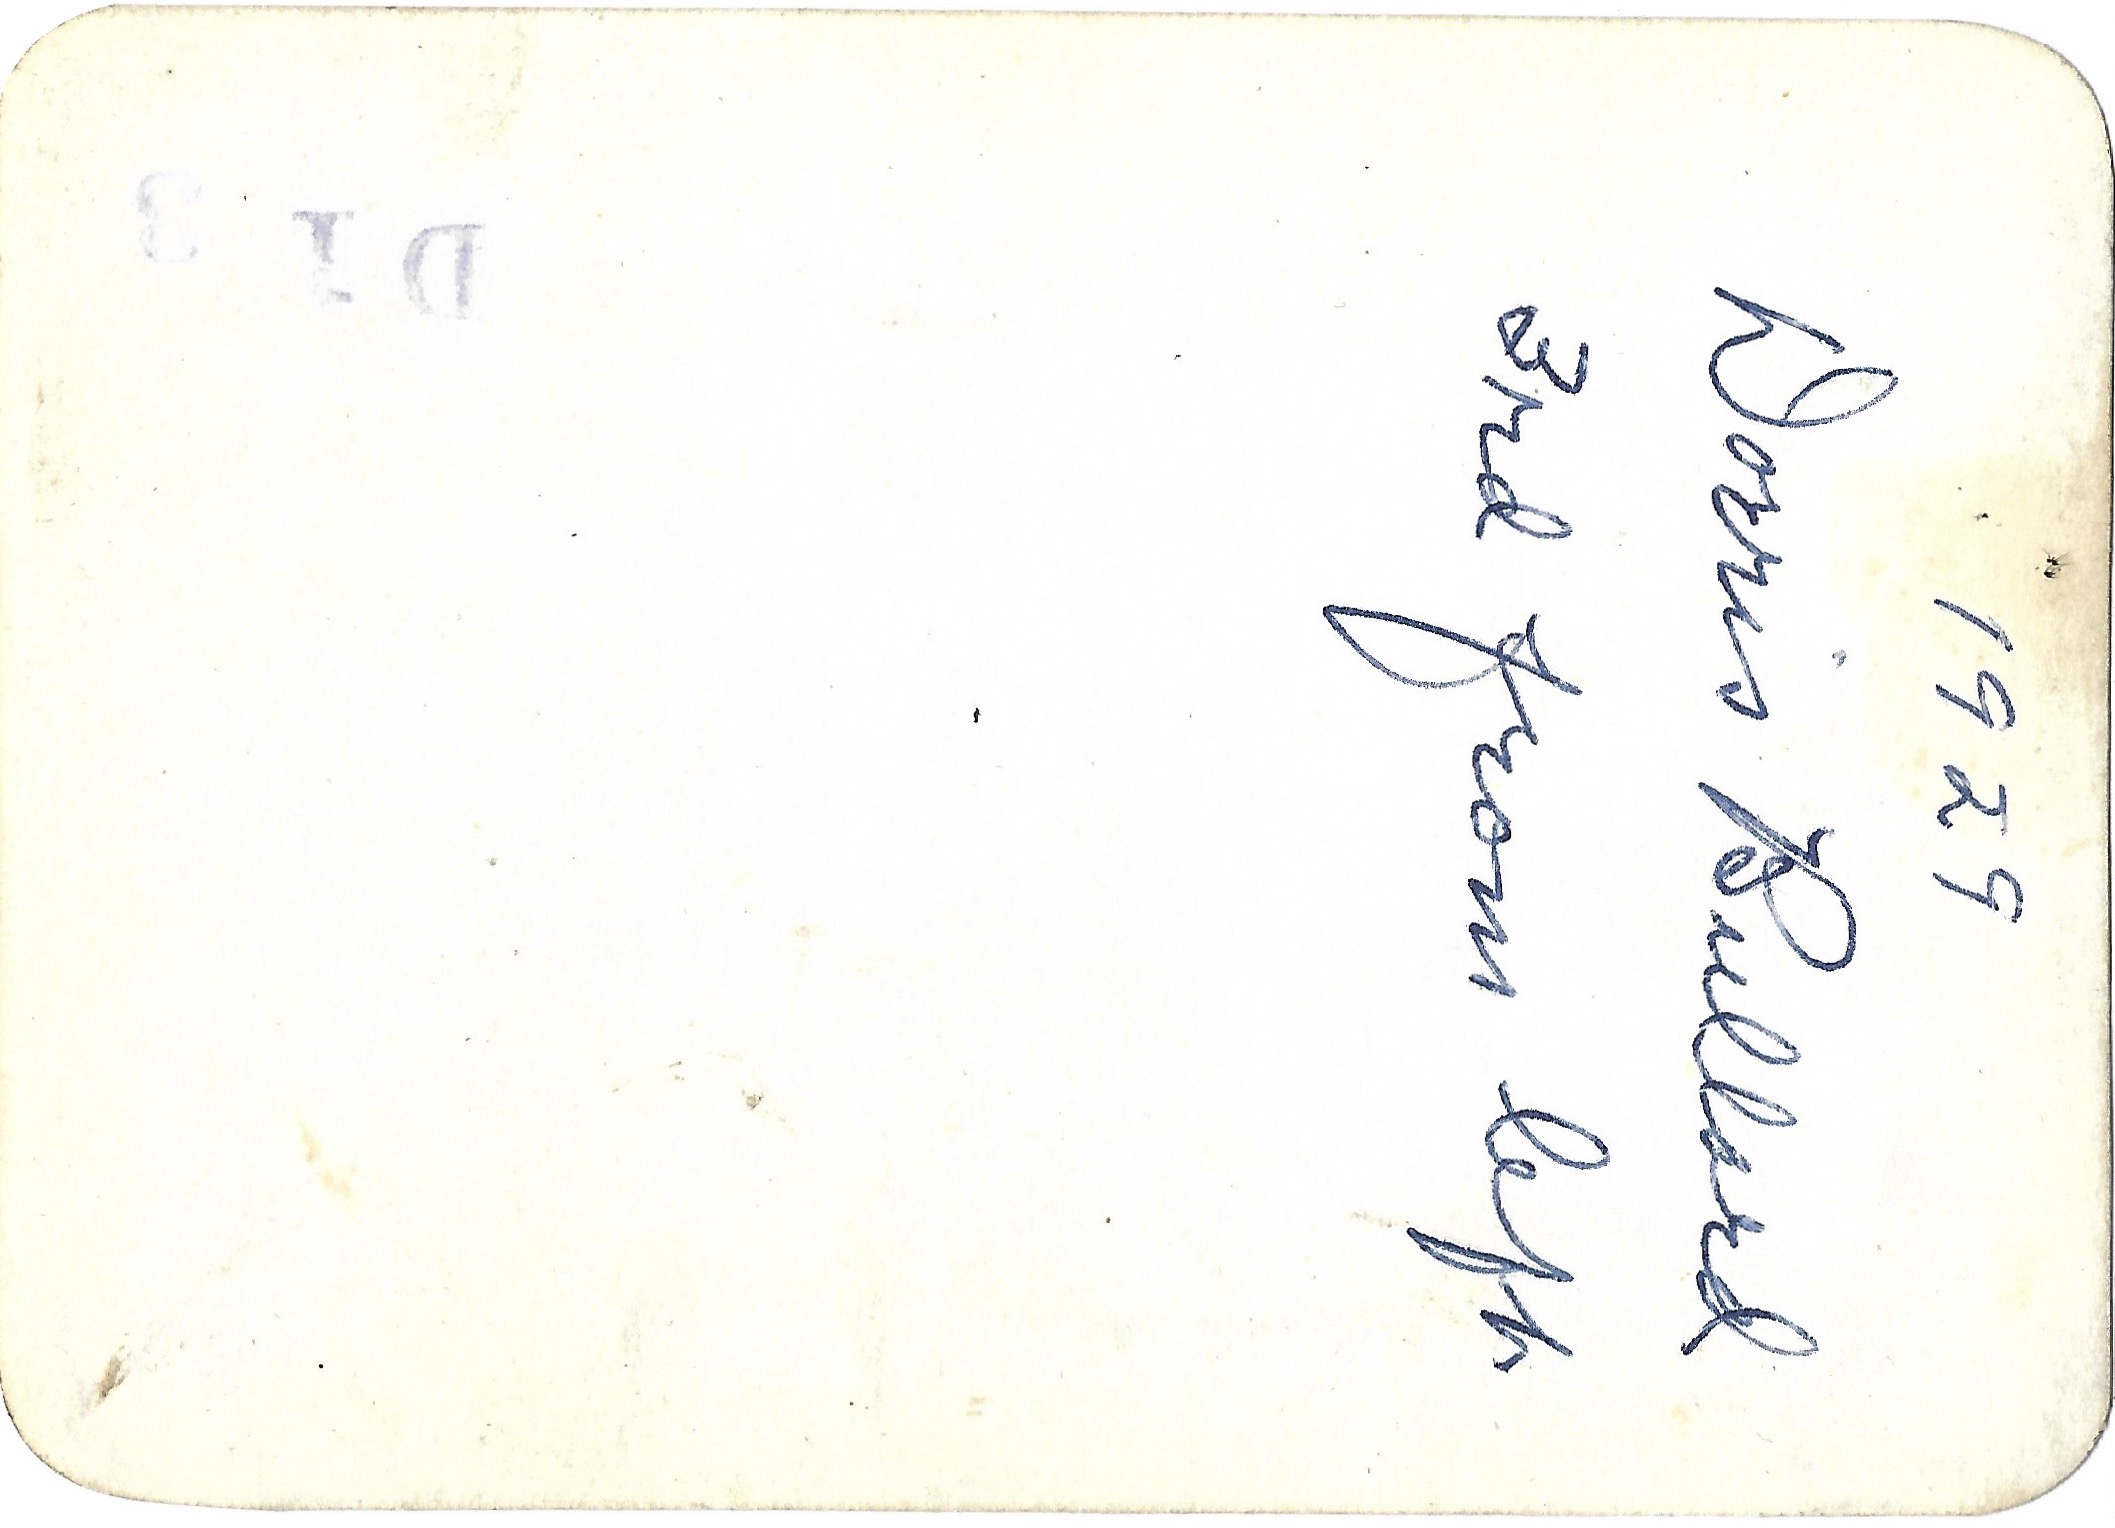 1929
Dorris Bullard
3rd from left
D1